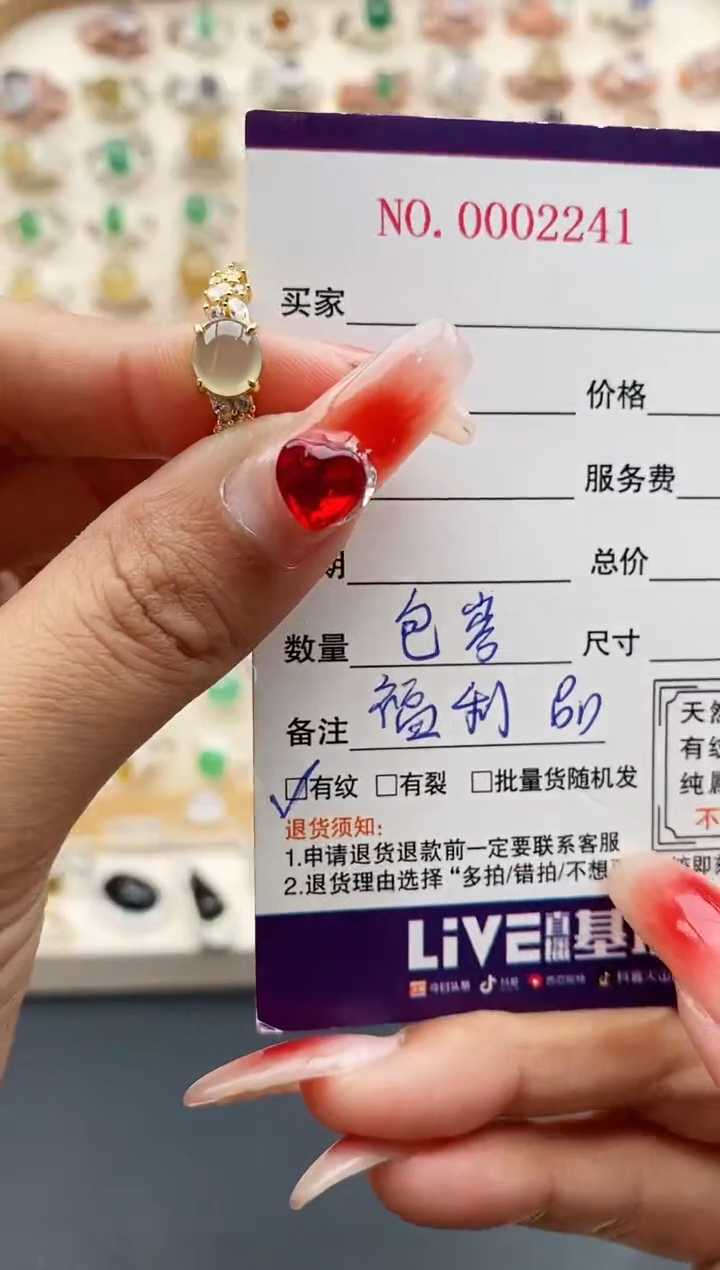 NO. 0002241
买家
价格
服务费
期 总价
数量 包害 尺寸
备注 福利品
□有纹 □有裂 □批量货随机发
退货须知:
1.申请退货退款前一定要联系客服
2.退货理由选择“多拍/错拍/不想
天然
有纹
纯属
不
LiVE直播基地
今日头条 抖音 西瓜视频 抖音火山